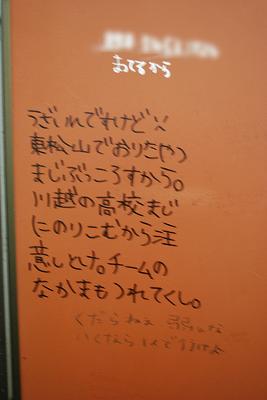 まてるから
うざいんですけど
東松山でおりたやつ
まじぶっころすから。
川越の高校まじ
にのりこむから注
意しとけ。チームの
なかまもつれてくし。
くだらねぇ 弱いな